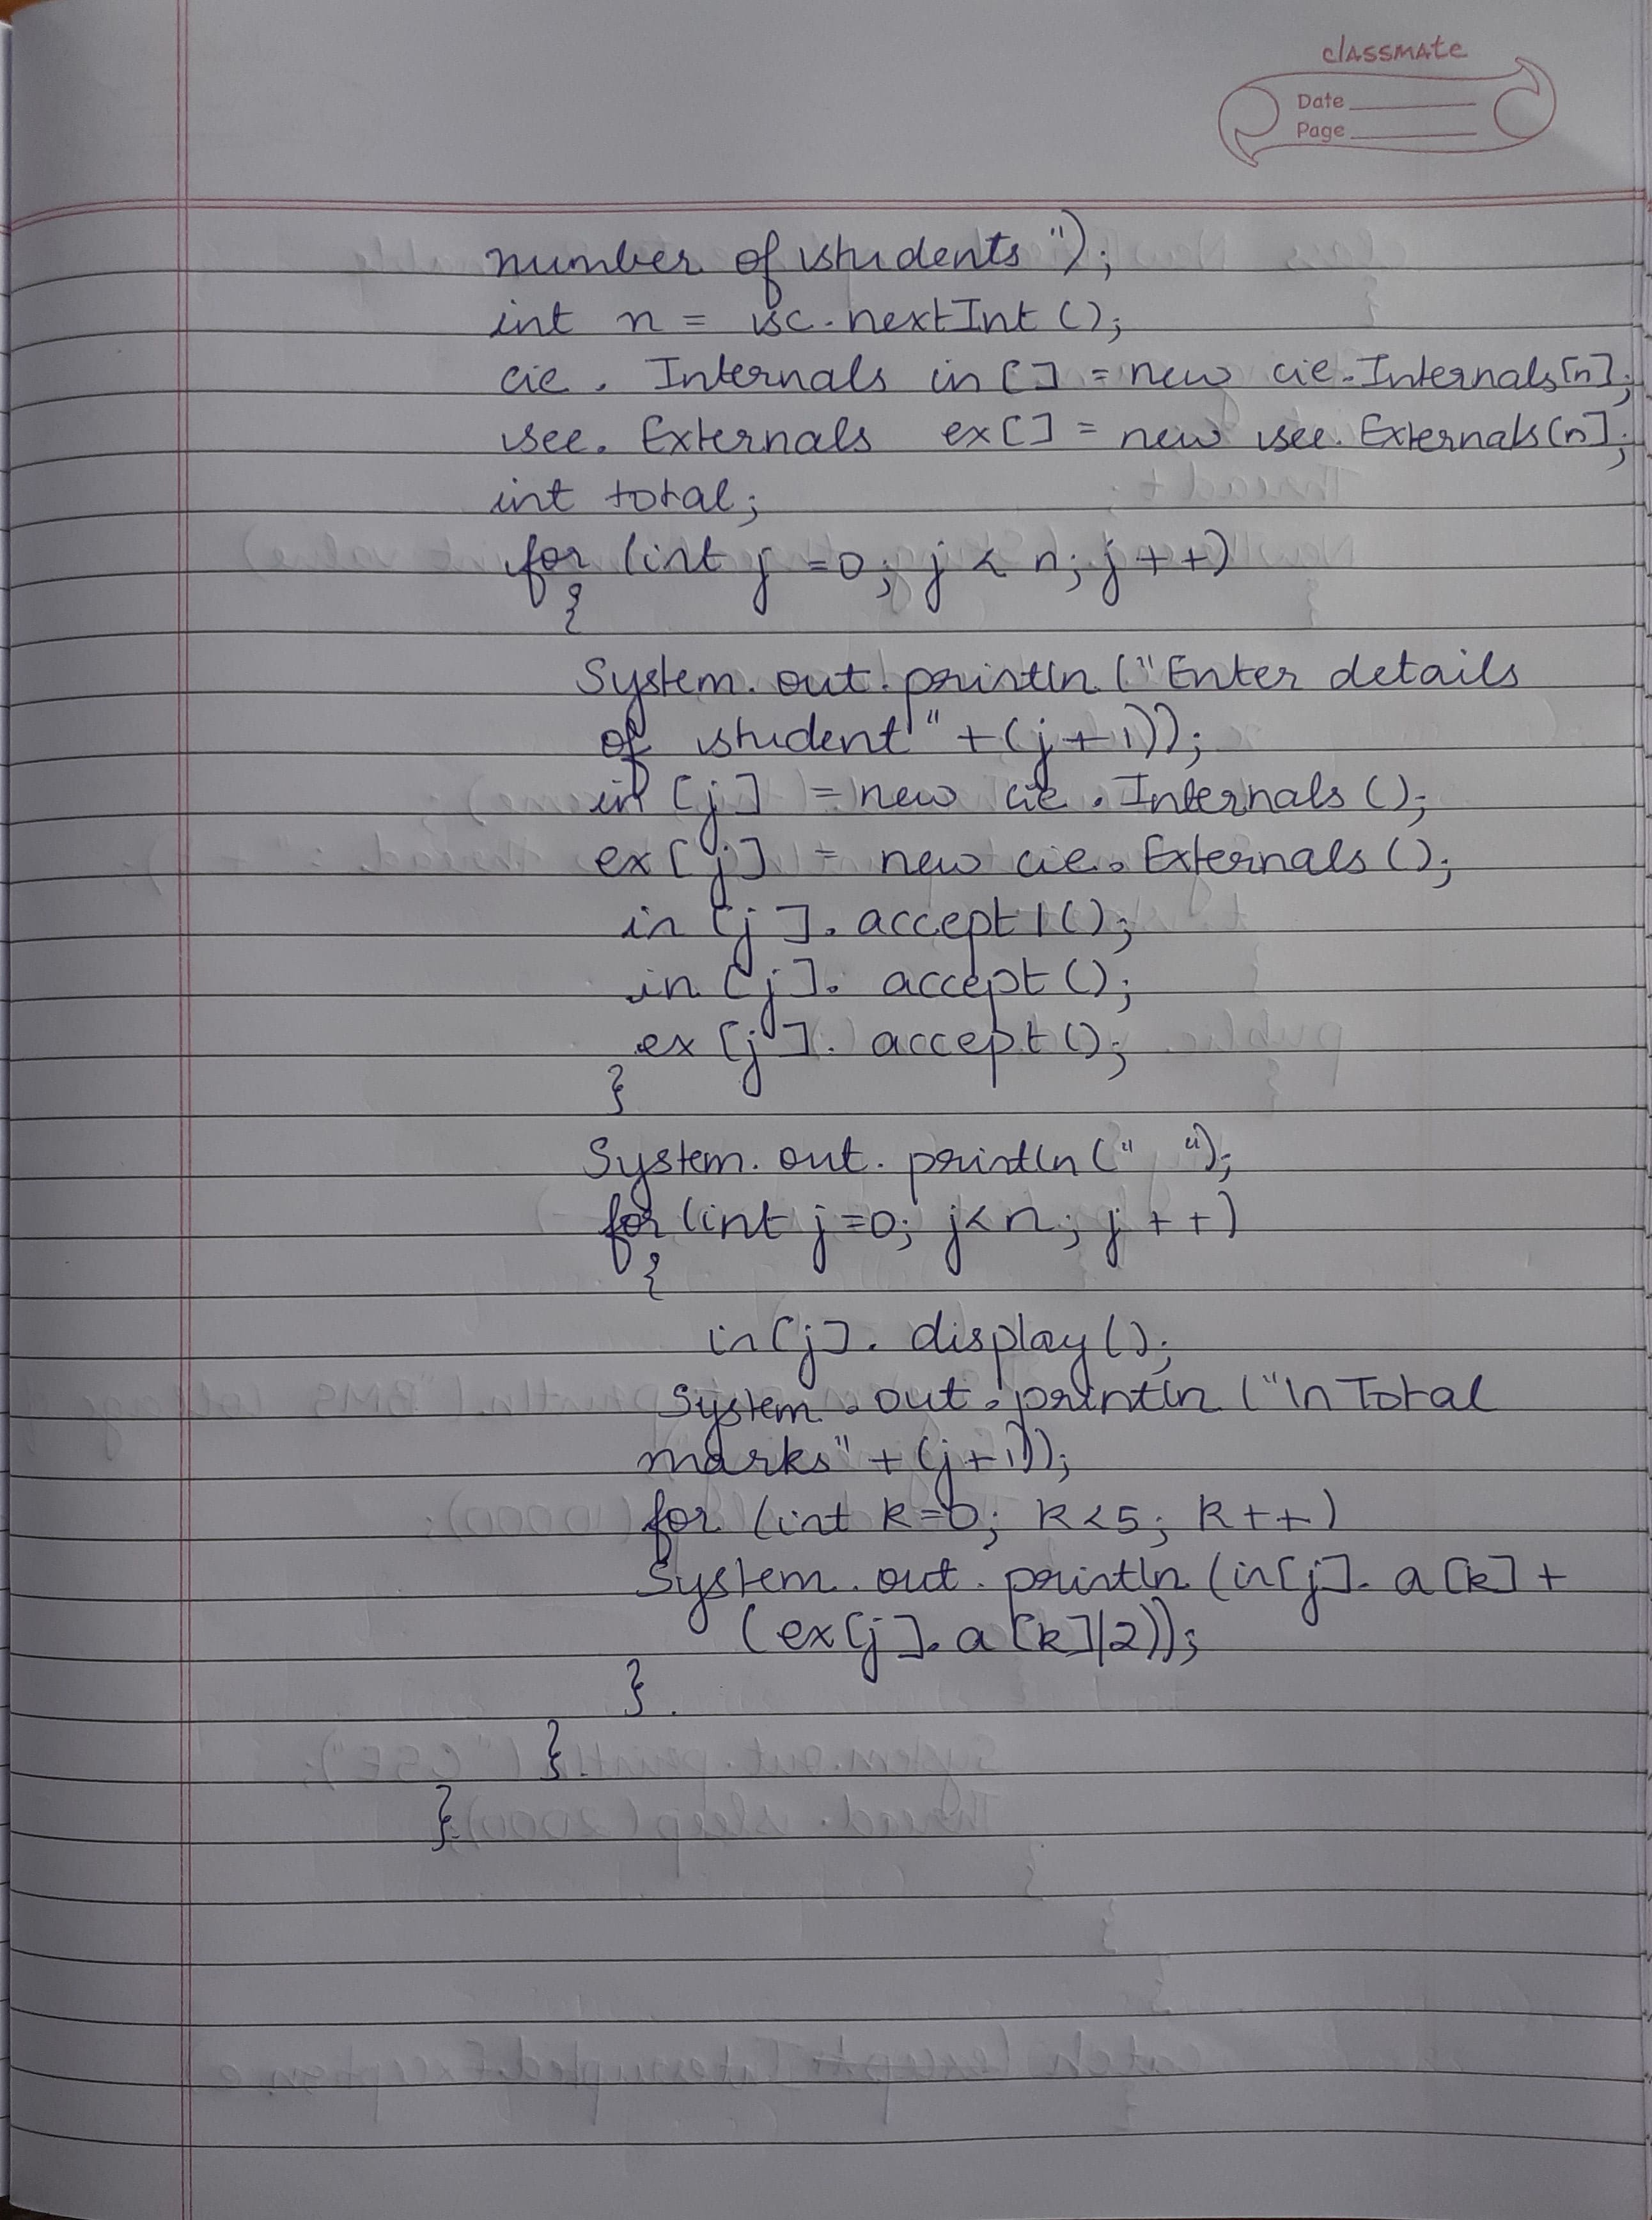 classmate
Date
Page
number of students");
int n = sc.nextInt();
cie. Internals in[] = new cie.Internals[n];
see. Externals ex[] = new see. Externals[n];
int total;
for (int j =0; j < n; j ++)
{
System. out. println ("Enter details
of student" +(j+1));
in [j] = new cie. Internals ();
ex [j] = new cie. Externals ();
in [j]. accept1();
in [j]. accept ();
ex [j]. accept();
}
System. out. println (" ");
for (int j=0; j<n; j ++)
{
in[j]. display();
System. out. println ("\n Total
marks" + (j+1));
for (int k=0; k<5; k++)
System. out. println (in[j]. a[k] +
(ex[j]. a [k]/2));
}
}
}